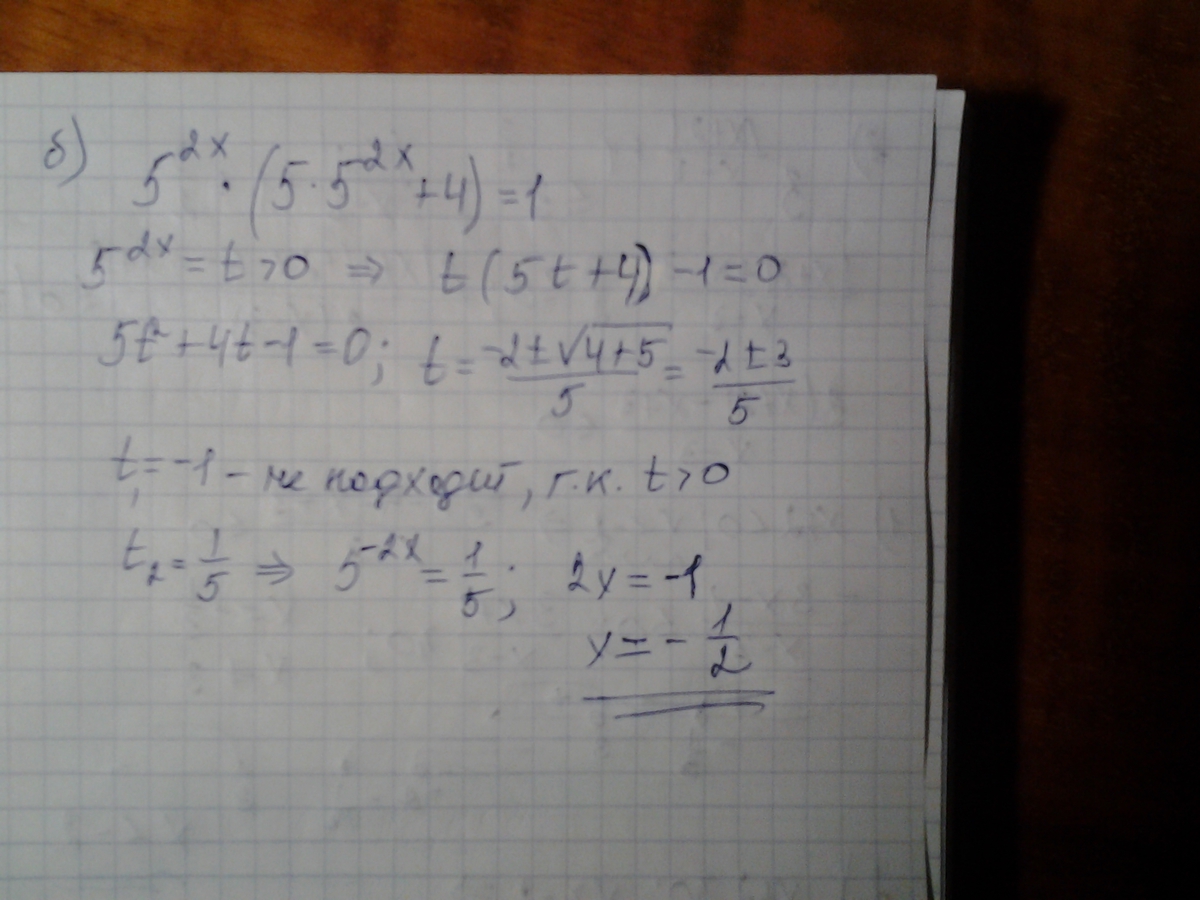 б) 5^2x · (5·5^2x + 4) = 1
5^2x = t > 0 ⇒ t(5t + 4) - 1 = 0
5t² + 4t - 1 = 0; t = (-2 ± √(4+5))/5 = (-2 ± 3)/5
t₁ = -1 – не подходит, т.к. t > 0
t₂ = 1/5 ⇒ 5^-2x = 1/5; 2x = -1
x = - 1/2